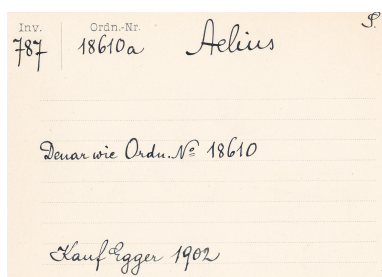 Inv. Ordn.-Nr. S.
787 18610a Aelius
Denar wie Ordn. Nº 18610
Kauf Egger 1902